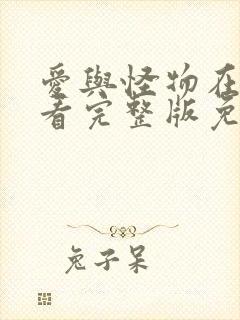 愛與怪物在
看完整版免
兔子呆